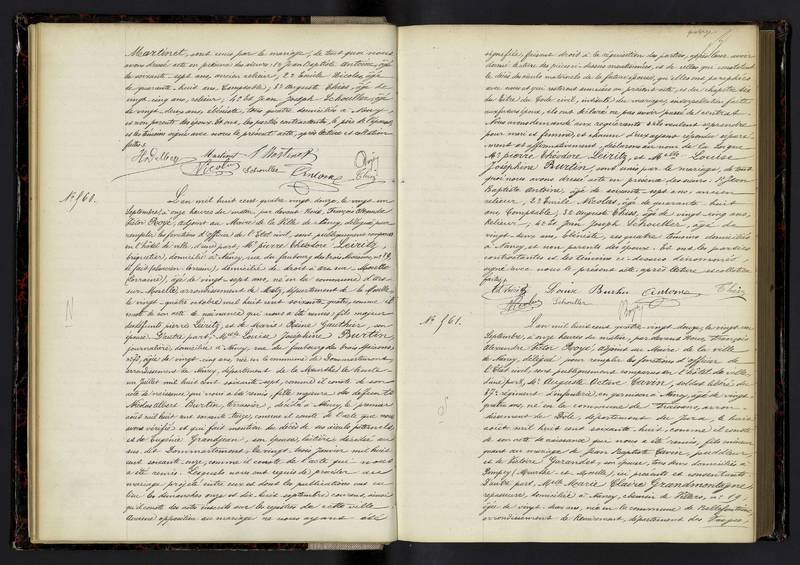 Martinet, sont unis par le mariage, de tout quoi nous
avons dressé acte en présence des sieurs: 1º Jean Baptiste Antoine, âgé
de soixante sept ans, ancien relieur, 2º Emile Nicolas, âgé
de quarante huit ans, Comptable, 3º Auguste Thiss, âgé de
vingt cinq ans, relieur, 4º et Jean Joseph Schoeller, âgé
de vingt deux ans, ébéniste, tous quatre domiciliés à Nancy,
et non parents des époux. Et ont, les parties contractantes, le père de l'épouse
et les témoins signé avec nous le présent acte, après lecture et collation
faites.
Martinet
Nicolas Schoeller Antoine Thiss
Nº 960.
L'an mil huit cent quatre vingt douze, le vingt un
Septembre, à onze heures du matin, par devant Nous, François Alexandre
Victor Royé, adjoint au Maire de la Ville de Nancy, délégué pour
remplir les fonctions d'officier de l'Etat civil, sont publiquement comparus
en l'hôtel de ville, d'une part, Mr pierre Théodore Levritz,
domicilié à Nancy, rue du faubourg des trois Maisons, nº 73,
domicilié de droit à Ars sur Moselle
(Lorraine), âgé de vingt sept ans, né en la commune d'Ars
sur Moselle, arrondissement de Metz, département de la Moselle,
le vingt quatre octobre mil huit cent soixante quatre, comme il
conste de son acte de naissance qui nous a été remis; fils majeur
de pierre Levritz et de Marie Reine Gauthier, son
épouse. D'autre part, Melle Louise Joséphine Burtin,
journalière, domiciliée à Nancy, rue du faubourg des trois Maisons,
nº 73, âgée de vingt cinq ans, née en la commune de Dommartemont,
arrondissement de Nancy, département de la Meurthe, le trente
un juillet mil huit cent soixante sept, comme il conste de son
acte de naissance qui nous a été remis, fille majeure des défunts
Nicolas Albert Burtin, décédé à Nancy, le premier
août mil huit cent soixante treize, comme il conste de l'acte que nous
avons vérifié et qui fait mention du décès de ses aïeuls paternels
et de Eugénie Grandjean, son épouse, laitière, décédée au
sus dit Dommartemont, le vingt trois janvier mil huit
cent soixante onze, comme il conste de l'acte qui nous
a été remis. Lesquels nous ont requis de procéder au
mariage projeté entre eux et dont les publications ont eu
lieu les dimanches onze et dix huit septembre courant, ainsi
qu'il conste des acte inscrits sur les registres de cette ville.
Aucune opposition au mariage ne nous ayant été
signifiée, faisant droit à la réquisition des parties, après leur avoir
donné lecture des pièces ci-dessus mentionnées, et de celles qui constatent
le décès des aïeuls maternels de la future épouse, qu'elles ont paraphées
avec nous et qui resteront annexées au présent acte, et du chapitre six
du titre du Code civil, intitulé du mariage, interpellation faite
aux futurs époux, ils ont déclaré ne pas avoir passé de contrat.
Nous avons demandé aux requérants s'ils veulent se prendre
pour mari et femme, et chacun d'eux ayant répondu séparément
et affirmativement, déclarons au nom de la loi que
Mr pierre Théodore Levritz, et Melle Louise
Joséphine Burtin, sont unis par le mariage, de tout
quoi nous avons dressé acte en présence des sieurs: 1º Jean
Baptiste Antoine, âgé de soixante sept ans, ancien
relieur, 2º Emile Nicolas, âgé de quarante huit
ans, Comptable, 3º Auguste Thiss, âgé de vingt cinq ans,
relieur, 4º et Jean Joseph Schoeller, âgé de
vingt deux ans, Ebéniste, ces quatre témoins domiciliés
à Nancy et non parents des époux. Et ont les parties
contractantes et les témoins ci-dessus dénommés,
signé avec nous le présent acte, après lecture et collation
faites.
Levritz Louise Burtin Antoine Thiss
Nicolas Schoeller Royé
Nº 961.
L'an mil huit cent quatre vingt douze, le vingt un
Septembre, à onze heures du matin, par devant Nous, François
Alexandre Victor Royé, adjoint au Maire de la ville
de Nancy, délégué pour remplir les fonctions d'officier de
l'Etat civil, sont publiquement comparus en l'hôtel de ville,
d'une part, Mr Auguste Octave Cavin, soldat libéré du
régiment d'infanterie, en garnison à Nancy, âgé de vingt
quatre ans, né en la commune de arrondissement
de Dôle, département du Jura, le huit
août mil huit cent soixante huit, comme il conste
de son acte de naissance qui nous a été remis, fils mineur
quant au mariage de Jean Baptiste Cavin,
et de Victoire Girardet, son épouse, tous deux domiciliés à
Pompey (Meurthe et Moselle), ici présents et consentants.
D'autre part, Melle Marie Claire Grandmontagne,
repasseuse, domiciliée à Nancy, chemin de Villers, nº 19,
âgée de vingt deux ans, née en la commune de Bellefontaine,
arrondissement de Remiremont, département des Vosges,